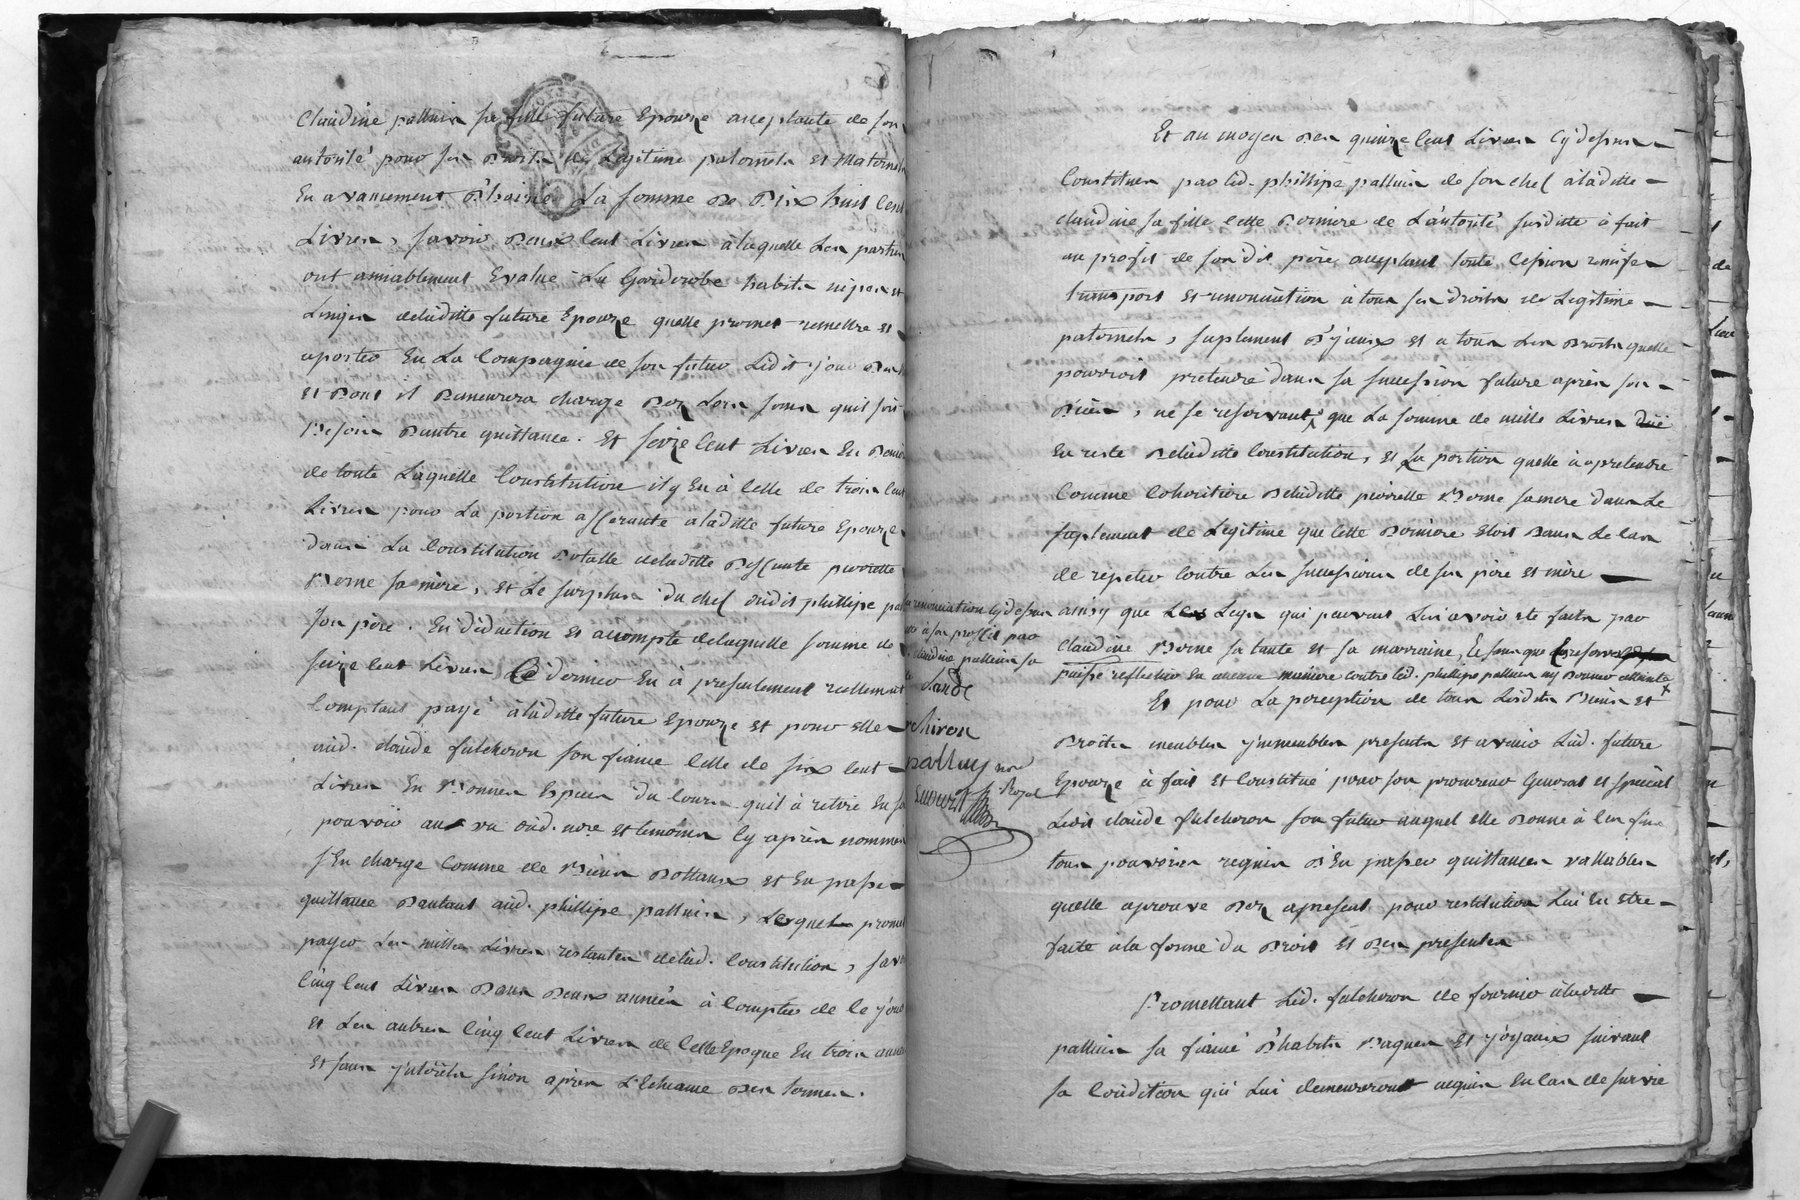 Claudine palluis sa fille future Epouze acceptante de son
autorité pour ses Droits de Legitime paternels et Maternels
En avancement D'hoirie La somme De Dix huit Cent
Livres, savoir Deux Cent Livres à laquelle Les parties
ont amiablement Evalué La Garderobe habits nipes et
Linges deladitte future Epouze quelle promet remettre et
aporter En La Compagnie de son futur Ledit jour
et Dont il Demeurera chargé Dez Lors sans quil soit
Besoin Dautre quittance. Et seize Cent Livres En
de toute Laquelle Constitution il y En à Celle de trois Cent
Livres pour La portion afferante aladitte future Epouze
dans La Constitution Dotalle deladitte Deffunte pierrette
Borne sa mère, et Le surplus du chef dudit phillipe
son père. En déduction et accompte delaquelle somme de
seize Cent Livres Ce dernier En à presentement reellement
Comptant payé àladitte future Epouze et pour elle
aud. claude fulcheron son fiancé Celle de six Cent
Livres En Bonnes Espèces du Cours quil à retiré En sa
pouvoir au vu dud. nore et temoins Cy après nommés
s'En charge Comme de Biens Dottaux et En passe
quittance Dautant aud. phillipe palluis, Lequel promet
payer Les milles Livres restantes delad. Constitution, savoir
Cinq Cent Livres Dans Deux années à Compter de Ce jour
et Les autres Cinq Cent Livres de Cette Epoque En trois années
et sans jnterêts sinon après L'Echeance Des termes.
Et au moyen Des quinze Cent Livres Cy dessus
Constitués par led. phillipe palluis de son chef àladitte
claudine sa fille Cette Derniere de L'autorité susditte à fait
au profit de son dit père acceptant toute Cession remise
transport et renonciation à tous ses droits de Legitime
paternels, suplement D'jceux et a tous Les Droits quelle
pourroit pretendre dans sa succession future après son
Décès, ne se reservant que La somme de mille Livres düe
En reste deladitte Constitution, et La portion quelle à apretendre
Comme Cohéritière deladitte pierrette Borne sa mere dans Le
suplement de Legitime que Cette Derniere etoit Dans Le Cas
de repeter Contre Les successions de ses père et mère
ainsy que Les Legs qui peuvent Lui avoir été faits par
Claudine Borne sa tante et sa marraine, sans que
puisse reflechir En aucune manière contre led. phillipe palluis ny Donner atteinte
renonciation Cy dessus
à son proffit par
claudine palluis sa
Sandé
chiron
palluis nore
Royal
Et pour La perception de tous Lesdits Biens et
Droits meubles jmmeubles presents et avenir Lad. future
Epouze à fait et Constitué pour son procureur General et special
Ledit claude fulcheron son futur auquel elle Donne à Ces fins
tous pouvoirs requis D'En passer quittances vallables
quelle aprouve Dez apresent pour restitution Lui En etre
faite àla forme du Droit et Des presentes
Promettant Led. fulcheron de fournir àladitte
palluis sa fiancé D'habits Bagues Et joyaux suivant
sa Condition qui Lui demeureront acquis En Cas de survie